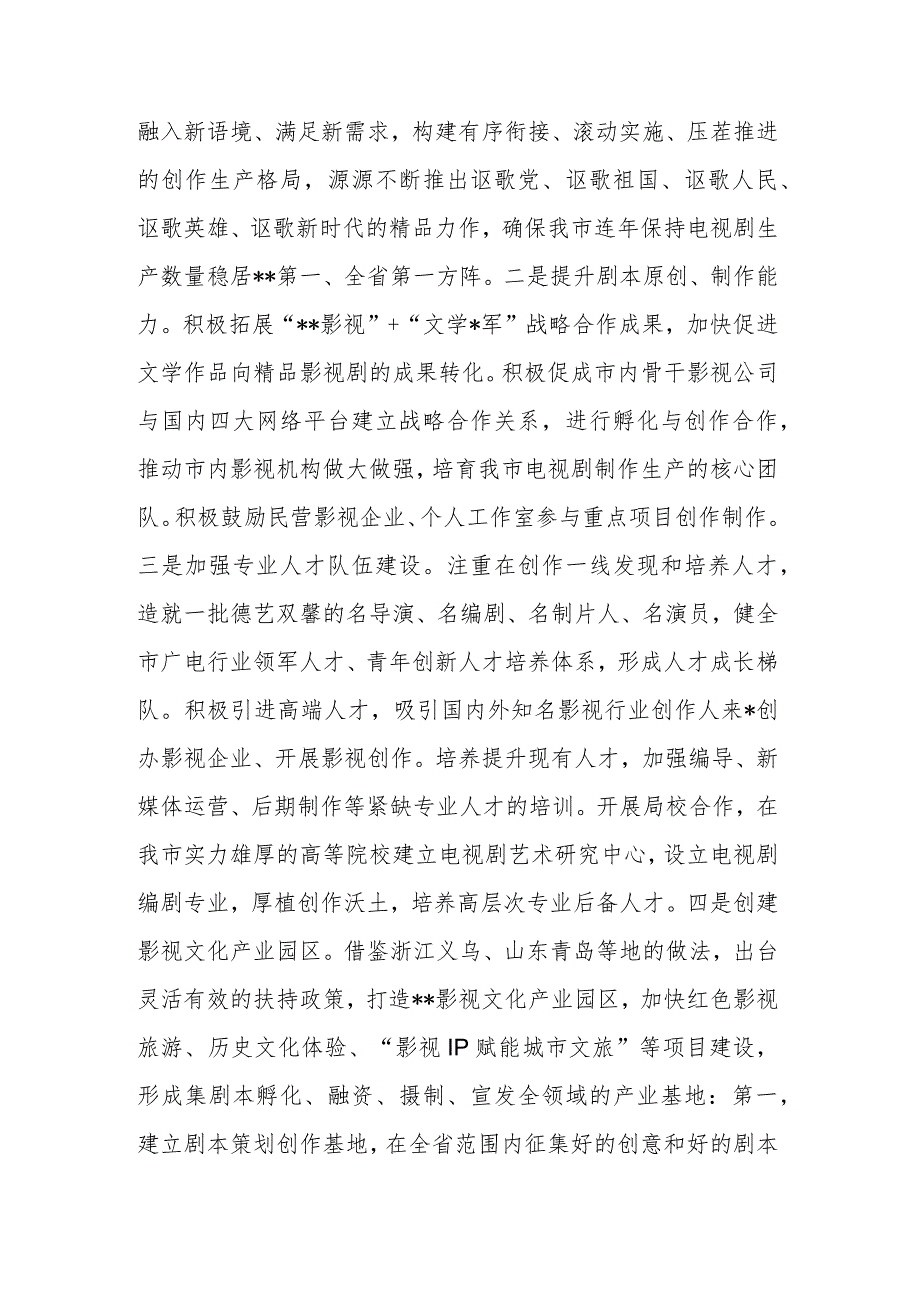 融入新语境、满足新需求，构建有序衔接、滚动实施、压茬推进
的创作生产格局，源源不断推出讴歌党、讴歌祖国、讴歌人民、
讴歌英雄、讴歌新时代的精品力作，确保我市连年保持电视剧生
产数量稳居**第一、全省第一方阵。二是提升剧本原创、制作能
力。积极拓展“**影视”+“文学*军”战略合作成果，加快促进
文学作品向精品影视剧的成果转化。积极促成市内骨干影视公司
与国内四大网络平台建立战略合作关系，进行孵化与创作合作，
推动市内影视机构做大做强，培育我市电视剧制作生产的核心团
队。积极鼓励民营影视企业、个人工作室参与重点项目创作制作。
三是加强专业人才队伍建设。注重在创作一线发现和培养人才，
造就一批德艺双馨的名导演、名编剧、名制片人、名演员，健全
市广电行业领军人才、青年创新人才培养体系，形成人才成长梯
队。积极引进高端人才，吸引国内外知名影视行业创作人来*创
办影视企业、开展影视创作。培养提升现有人才，加强编导、新
媒体运营、后期制作等紧缺专业人才的培训。开展局校合作，在
我市实力雄厚的高等院校建立电视剧艺术研究中心，设立电视剧
编剧专业，厚植创作沃土，培养高层次专业后备人才。四是创建
影视文化产业园区。借鉴浙江义乌、山东青岛等地的做法，出台
灵活有效的扶持政策，打造**影视文化产业园区，加快红色影视
旅游、历史文化体验、“影视 IP 赋能城市文旅”等项目建设，
形成集剧本孵化、融资、摄制、宣发全领域的产业基地：第一，
建立剧本策划创作基地，在全省范围内征集好的创意和好的剧本